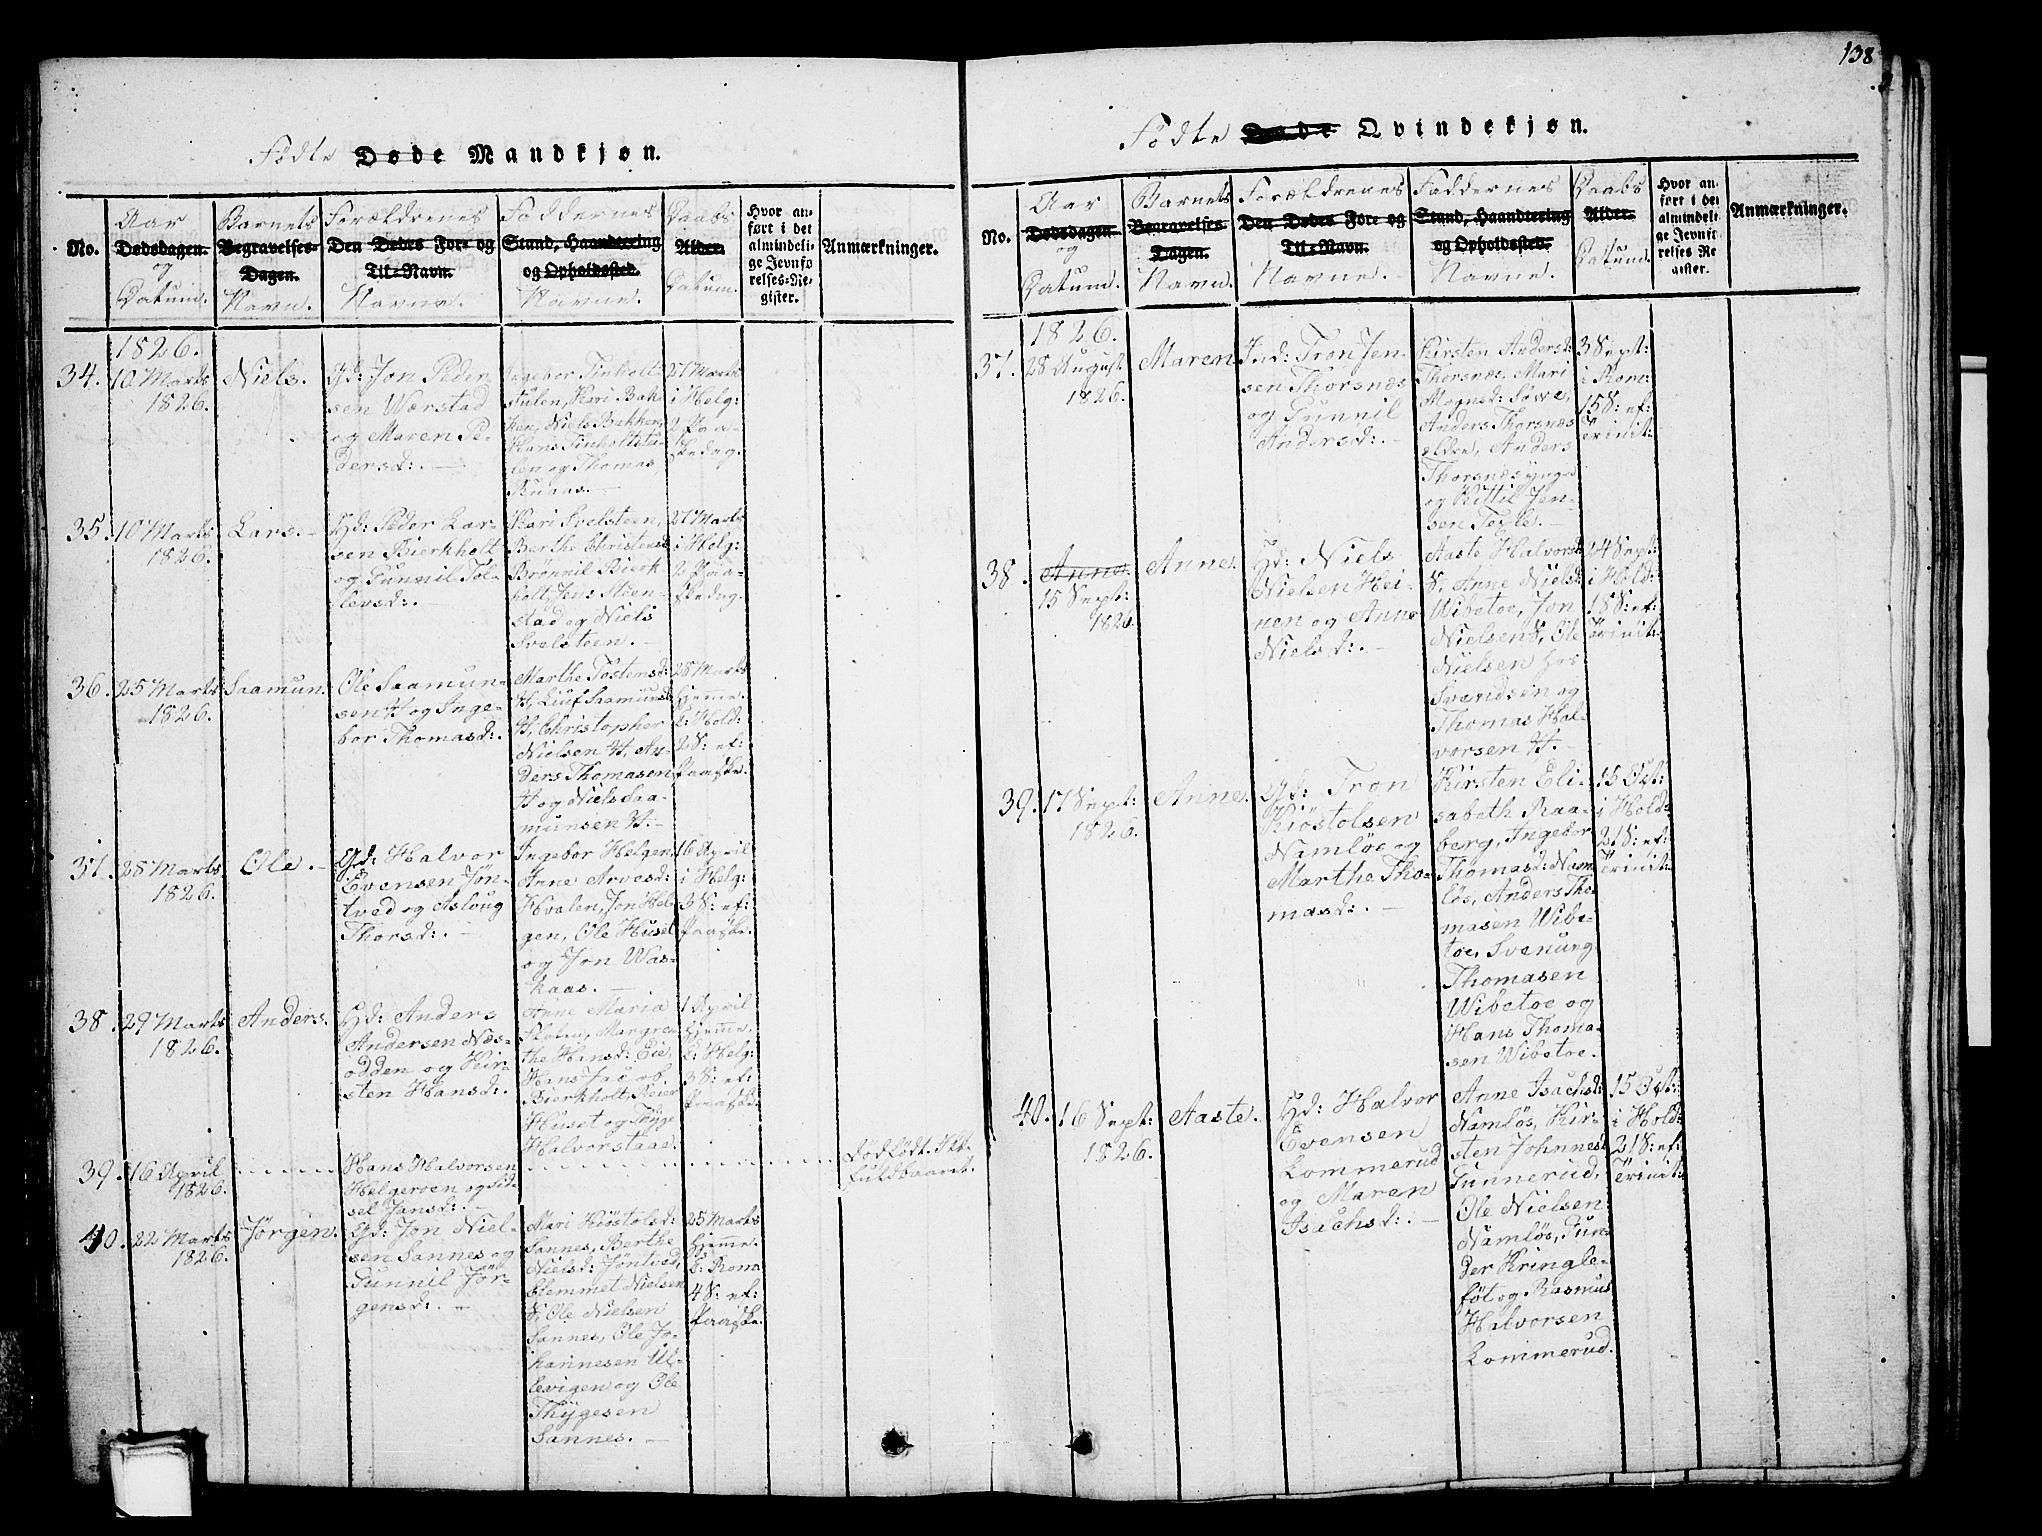 138
Födte Døde Mandkjøn.
No.
Aar
Dødsdagen.
og
Datum.
Barnets
Begravelses-
Dagen.
Navn.
Forældrenes
Den Dødes For- og
Til-Navn.
Navne.
Faddernes
Stand, Haandtering
og Opholdssted.
Navne.
Daabs
Alder.
Datum.
Hvor an-
ført i det
almindeli-
ge Jevnfø
relses-Re-
gister.
Anmærkninger.
1826.
34.
10 Marts
1826.
Niels.
Gd: Jon Peder
sen Wærstad
og Maren Pe-
dersd:. —
Ingebor Tinholt-
stulen, Kari Bak-
ken, Niels Bakken,
Hans Tinholtstu-
len og Thomas
Buaas. —
27 Marts
i Helg:
2 Paa-
skedag.
35.
10 Marts
1826.
Lars. —
Hd: Peder Lar-
sen Bierkholt
og Gunnil Tol-
levsd:. —
Kari Svelsteen,
Berthe Christensd
Brønnil Bierk
holt, Jens Steen-
stad og Niels
Svelsteen. —
27 Marts
i Helg:
2 Paa-
skedag.
36.
25 Marts
1826.
Saamun.
Ole Saamun-
sen H og Inge-
bor Thomasd:.
Marthe Tostensd:
H, Liuf Saamunsd
H, Christopher
Nielsen H, An-
ders Thomasen
H og Niels Saa-
munsen H. —
28 Marts
hjemme.
C: Hold:
2 S: ef:
Paaske.
37.
28 Marts
1826.
Ole. —
Gd: Halvor
Evensen Jön-
tved og Asloug
Thorsd:. —
Ingebor Helgen,
Anne Arvesd:
Hvalen, Jon Hel-
gen, Ole Huset
og Jon Was-
haas. —
16 April
i Helg:
3 S: ef:
Paaske.
38.
29 Marts
1826.
Anders.
Hd: Anders
Andersen Næs-
odden og Kir-
sten Hansd:.
Anne Maria
Holta, Margre-
the Hansd: Eie,
Hans Jacob
Bierkholt, Reier
Huset og Thyge
Halvorstaae.
1 April
hjemme.
C: Helg:
3 S: ef:
Paaske.
39.
16 April
1826.
Hans Halvorsen
Helgeroen og Sid-
sel Jansd:. —
Dödfödt. Ikke
fuldbaaret.
40.
22 Marts
1826.
Jörgen.
Gd: Jon Niel-
sen Sannes og
Gunnil Jör-
gensd:. —
Mari Kiöstolsd:
Sannes, Berthe
Nielsd: Jöntved,
Clemmet Nielsen
S, Ole Nielsen
Sannes, Ole Jo-
hannesen Ul-
levigen og Ole
Thygesen
Sannes. —
25 Marts
hjemme.
C: Rom:
4 S: ef:
Paaske.
Födte Døde Qvindekjøn.
No.
Aar
Dødsdagen.
og
Datum.
Barnets
Begravelses-
Dagen.
Navn.
Forældrenes
Den Dødes For- og
Til-Navn.
Navne.
Faddernes
Stand, Haandtering
og Opholdssted.
Navne.
Daabs
Alder.
Datum.
Hvor an-
ført i det
almindeli-
ge Jevnfø-
relses Re
gister.
Anmærkninger.
1826.
37.
28 August
1826.
Maren.
Ind: Tron Jen-
sen Thorsnæs
og Gunnil
Andersd:. —
Kirsten Andersd:
Thorsnæs, Mari
Mognsd: Søwe,
Anders Thorsnæs
eldre, Anders
Thorsnæs yngre
og Kittil Jen-
sen Teyle. —
3 Sept:
i Rom:
15 S: ef:
Trinit:
38.
Anne
15 Sept:
1826.
Anne.
Hd: Niels
Nielsen Hei-
nen og Anne
Nielsd:. —
Aaste Halvorsd:
S, Anne Nielsd:
Wibetoe, Jon
Nielsen S, Ole
Nielsen hos
Svendsen og
Thomas Hal-
vorsen H. —
24 Sept:
i Hold:
18 S: ef:
Trinit:
39.
17 Sept:
1826.
Anne.
Gd: Tron
Kiöstolsen
Namlöe og
Marthe Tho-
masd:. —
Kirsten Eli-
sabeth Raa-
berg, Ingebor
Thomasd: Nam
lös, Anders Tho-
masen Wibe-
toe, Svenung
Thomasen
Wibetoe og
Hans Thoma-
sen Wibetoe.
15 Oct:
i Hold:
21 S: ef:
Trinit:
40.
16 Sept:
1826.
Aaste.
Hd: Halvor
Evensen
Kommerud
og Maren
Isachsd:. —
Anne Isachsd:
Namlös, Kir-
sten Johnnesd
Gunnerud,
Ole Nielsen
Namlös, Gun-
der Kringle-
föt og Rasmus
Halvorsen
Kommerud.
15 Oct:
i Hold:
21 S: ef:
Trinit: